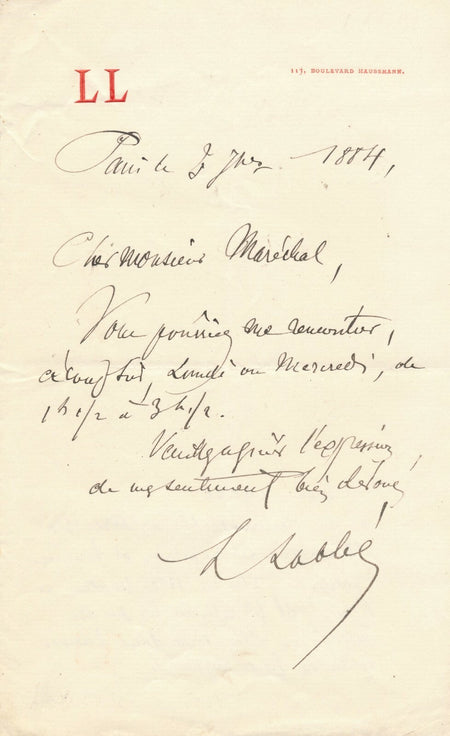 LL
117, BOULEVARD HAUSSMANN.
Paris le 5 7bre 1884,
Cher monsieur Maréchal,
Vous pourriez me rencontrer,
à coup sûr, Lundi ou Mercredi, de
1h 1/2 à 3h 1/2.
Veuillez agréer l'expression
de mes sentiments bien dévoués
L